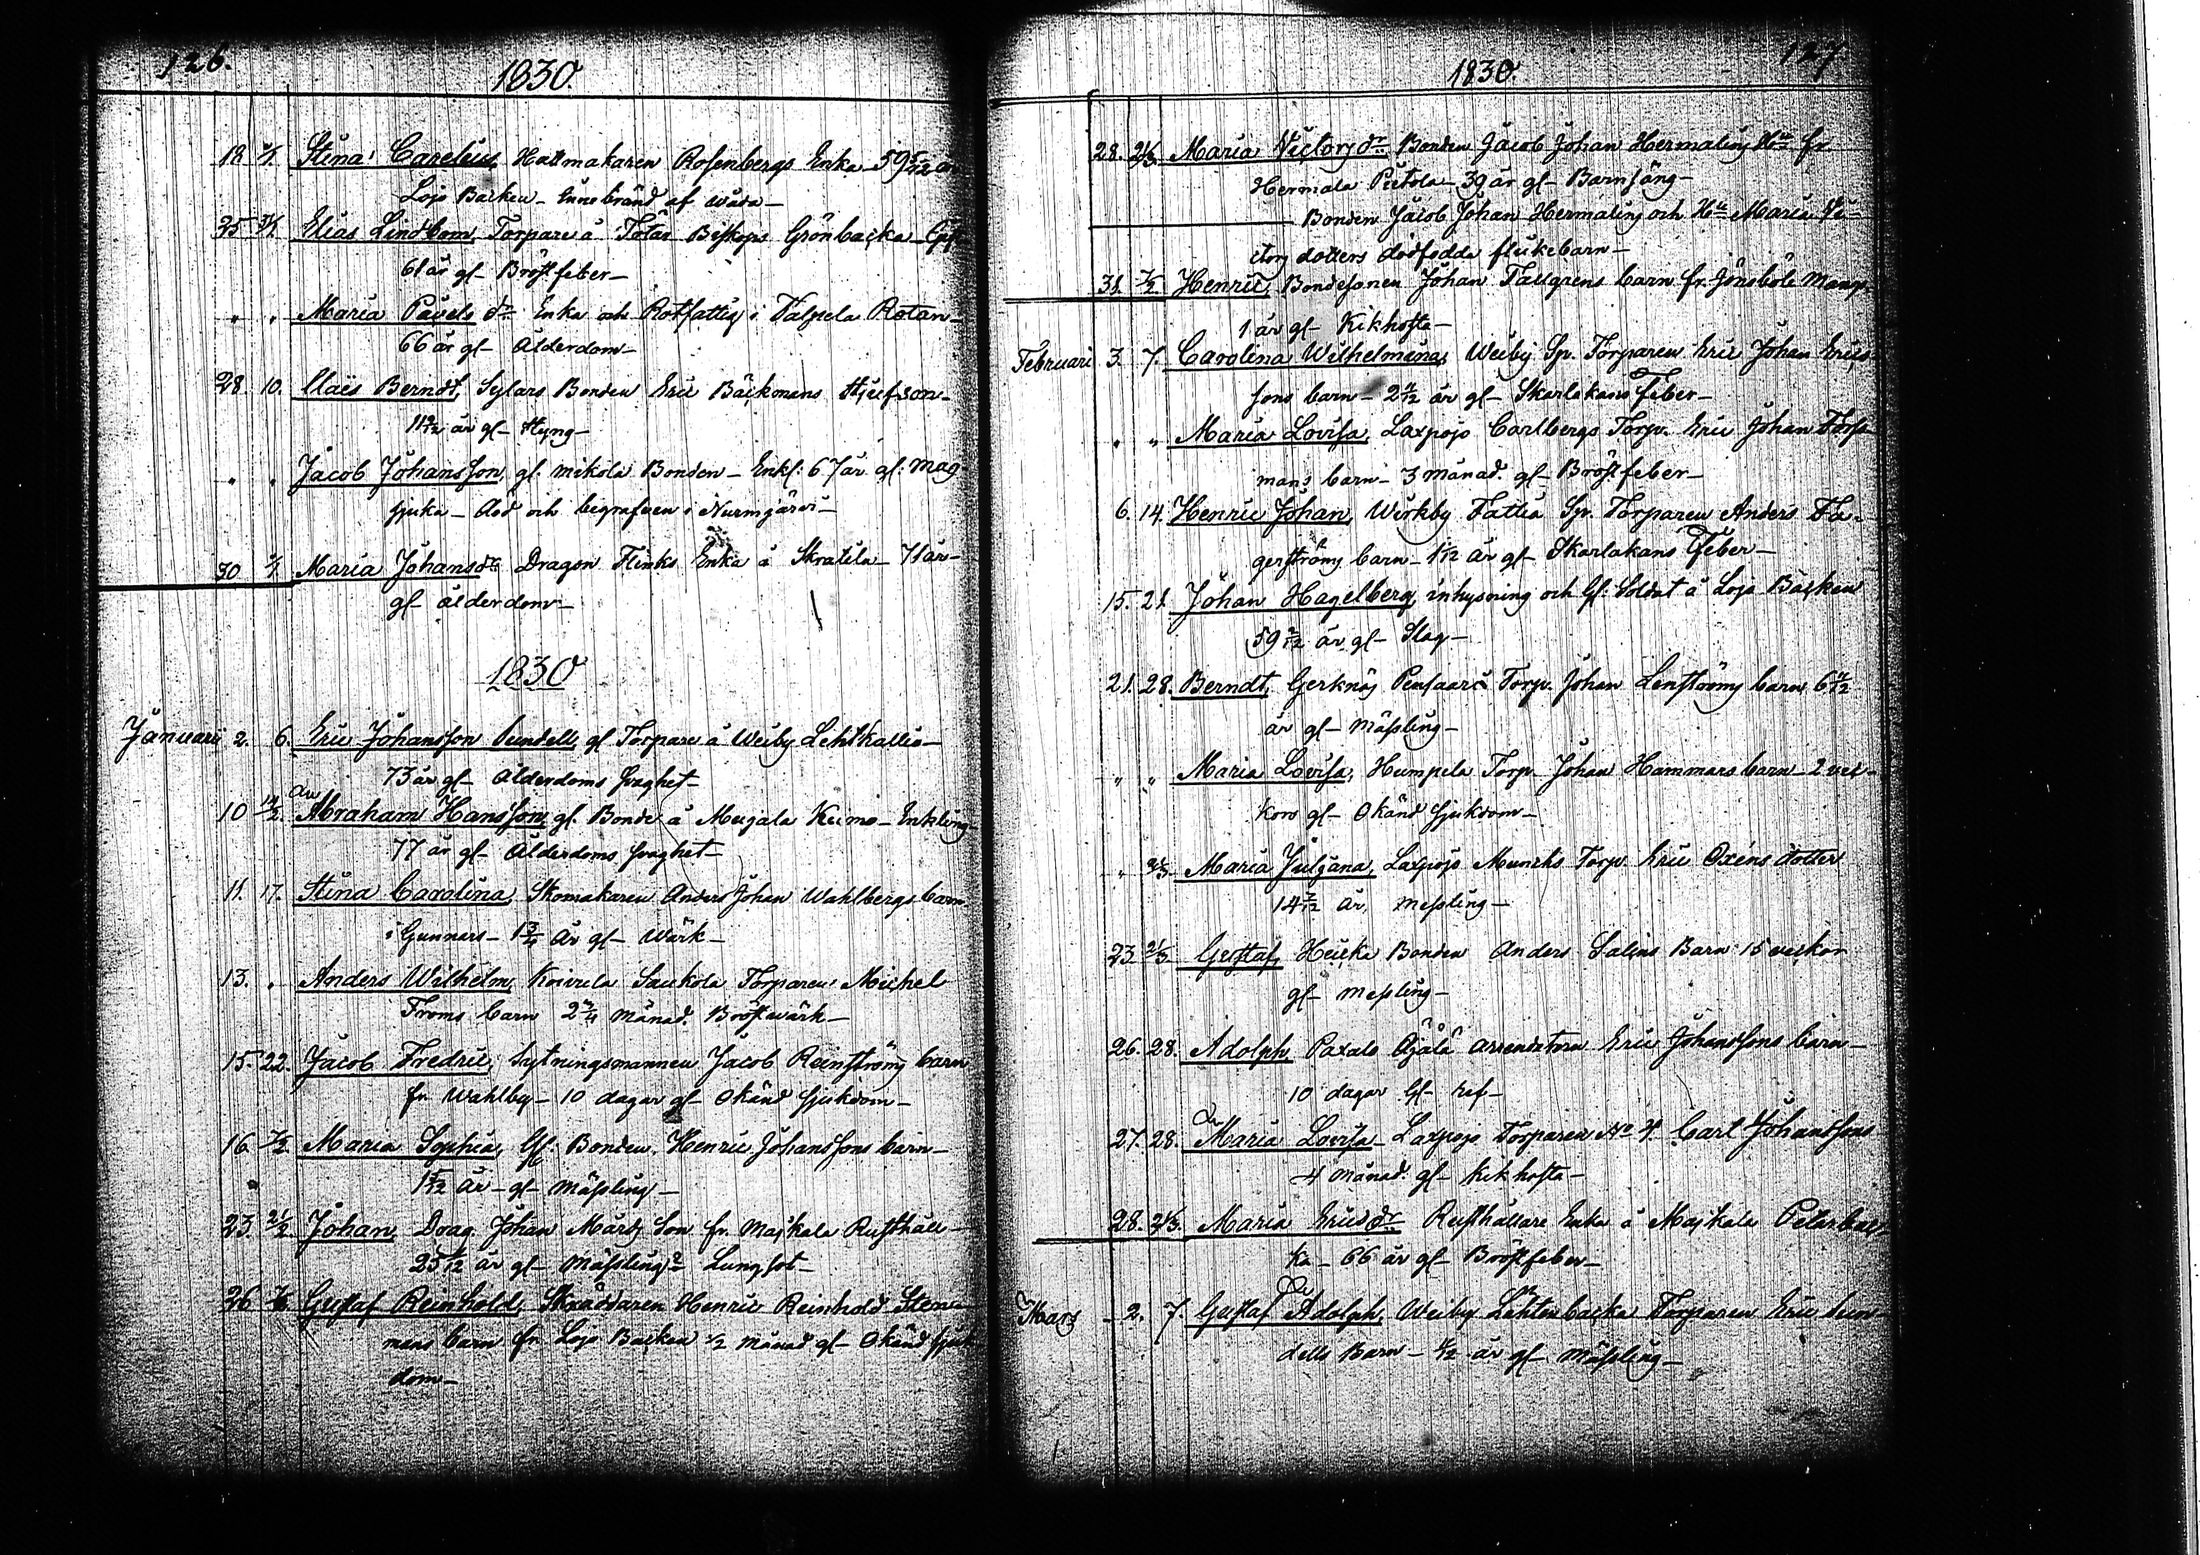 126.
1830.
18 Stina Carelius Hattmakaren Rosenbergs Enka 59 5/12 år
Lojo Backen -
25 31/1 Elias Lindbom, Torpare å Tötar Biskops Grönbacka
61 år gl- Bröstfeber-
" " Maria Påvels dr Enka och Rotfattig i Valpela Rotan-
66 år gl- Ålderdom-
28. 10. Claës Berndt, Sylars Bonden Eric Bäckmans Stjufson-
år gl- Styng-
" " Jacob Johansson, gl. mikola Bonden - Enkl: 67 år gl: Mag-
sjuka - Död och begrafven i Nurmijärvi-
30 Maria Johansdr Dragon Flinks Enka å Skraatila 71 år-
gl- ålderdom-
1830
Januari 2. 6. Eric Johansson Sundell, gl Torpare å Weiby Lehtkallio-
73 år gl- Ålderdoms svaghet-
10 14/2. Abraham Hansson, gl. Bonde å Keimo - Enkling-
77 år gl- Ålderdoms svaghet-
11. 17. Stina Carolina, Skomakaren Anders Johan Wahlbergs barn
i Gunnars - 1 3/4 år gl- Wärk-
13. " Anders Wilhelm, Koivula Saukola Torparen Michel
Froms barn 2 3/4 månad. Bröstvärk-
15. 22. Jacob Fredric, Sytningsmannen Jacob Renströms barn
fr. Wahlby - 10 dagar gl- Okänd sjukdom-
16. 7/2. Maria Sophia, Gl: Bonden Henric Johanssons barn-
år - gl- Mässling-
23. 21/2 Johan, Drag. Johan Märts Son fr. Majkala Rusthåll-
år gl- Mässling Lungsot-
26 Gustaf Reinhold, Skräddaren Henric Reinhold Sten
mans barn fr. Lojo Backen 1/2 månad gl- Okänd sjuk
dom-
127
1830.
28. 21/3 Maria Victorsdr Bonden Jacob Johan Hermalins Hu fr
Hermala Pietola - 39 år gl- Barnsäng-
Bonden Jacob Johan Hermalins och Hu Maria Vi-
ctors dotters dödfödda flickebarn-
31. 7/2 Henric, Bondesonen Johan Tallgrens barn fr. Jönsböle
1 år gl- Kikhosta-
Februari 3. 7. Carolina Wilhelmina, Weiby Sp. Torparen Eric Johan Erics
sons barn - år gl- Skarlakans Feber-
" " Maria Lovisa, Laxpojo Carlbergs Torp. Eric Johan Forss
mans barn - 3 månad. gl- Bröstfeber-
6. 14. Henric Johan, Wirkby Fattia Sp. Torparen Anders Fa-
gerströms barn - år gl- Skarlakans Feber-
15. 21. Johan Hagelberg, inhysning och Gl: Soldat å Lojo Backen
59 år gl- Slag-
21. 28. Berndt, Gerknäs Pensaari Torp. Johan Lenströms barn
år gl- Mässling-
" " Maria Lovisa, Humpela Torp Johan Hammars barn - 2 vec-
kor gl- Okänd sjukdom-
" Maria Juliana, Laxpojo Muncks Torp. Eric Oxéns dotter
14 år, Messling-
23. 21/3 Gustaf, Heicka Bonden Anders Salins Barn 15 veckor
gl- Messling-
26. 28. Adolph, Paxalo Ojala arrendatorn Eric Johanssons barn-
10 dagar Gl- ref-
27. 28. Maria Lovisa - Laxpojo Torparen No 4. Carl Johanssons
4 månad. gl- Kikhosta-
28. Maria Ericsdr Rusthållare Enka å Majkala Peterbac-
ka - 66 år gl- Bröstfeber-
Mars - 2. 7. Gustaf Adolph, Weiby Lehtenbacka Torparen Eric Sun
dells Barn - år gl- Mässling-